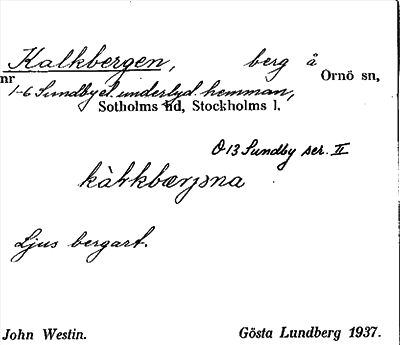 Kalkbergen, berg å Ornö sn,
nr 1-6 Sundby el. underlyd. hemman,
Sotholms hd, Stockholms l.
O13 Sundby ser. II
Ljus bergart.
John Westin. Gösta Lundberg 1937.